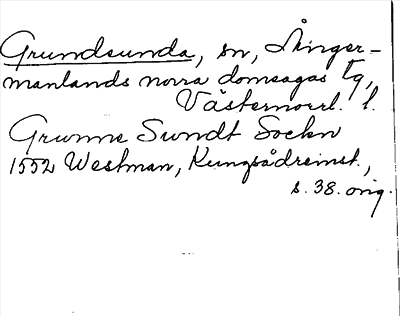 Grundsunda, sn, Ånger-
manlands norra domsagas tg,
Västernorrl. l.
Grunne Sundt Sockn
1552 Westman, Kungsådreinst.,
s. 38. orig.